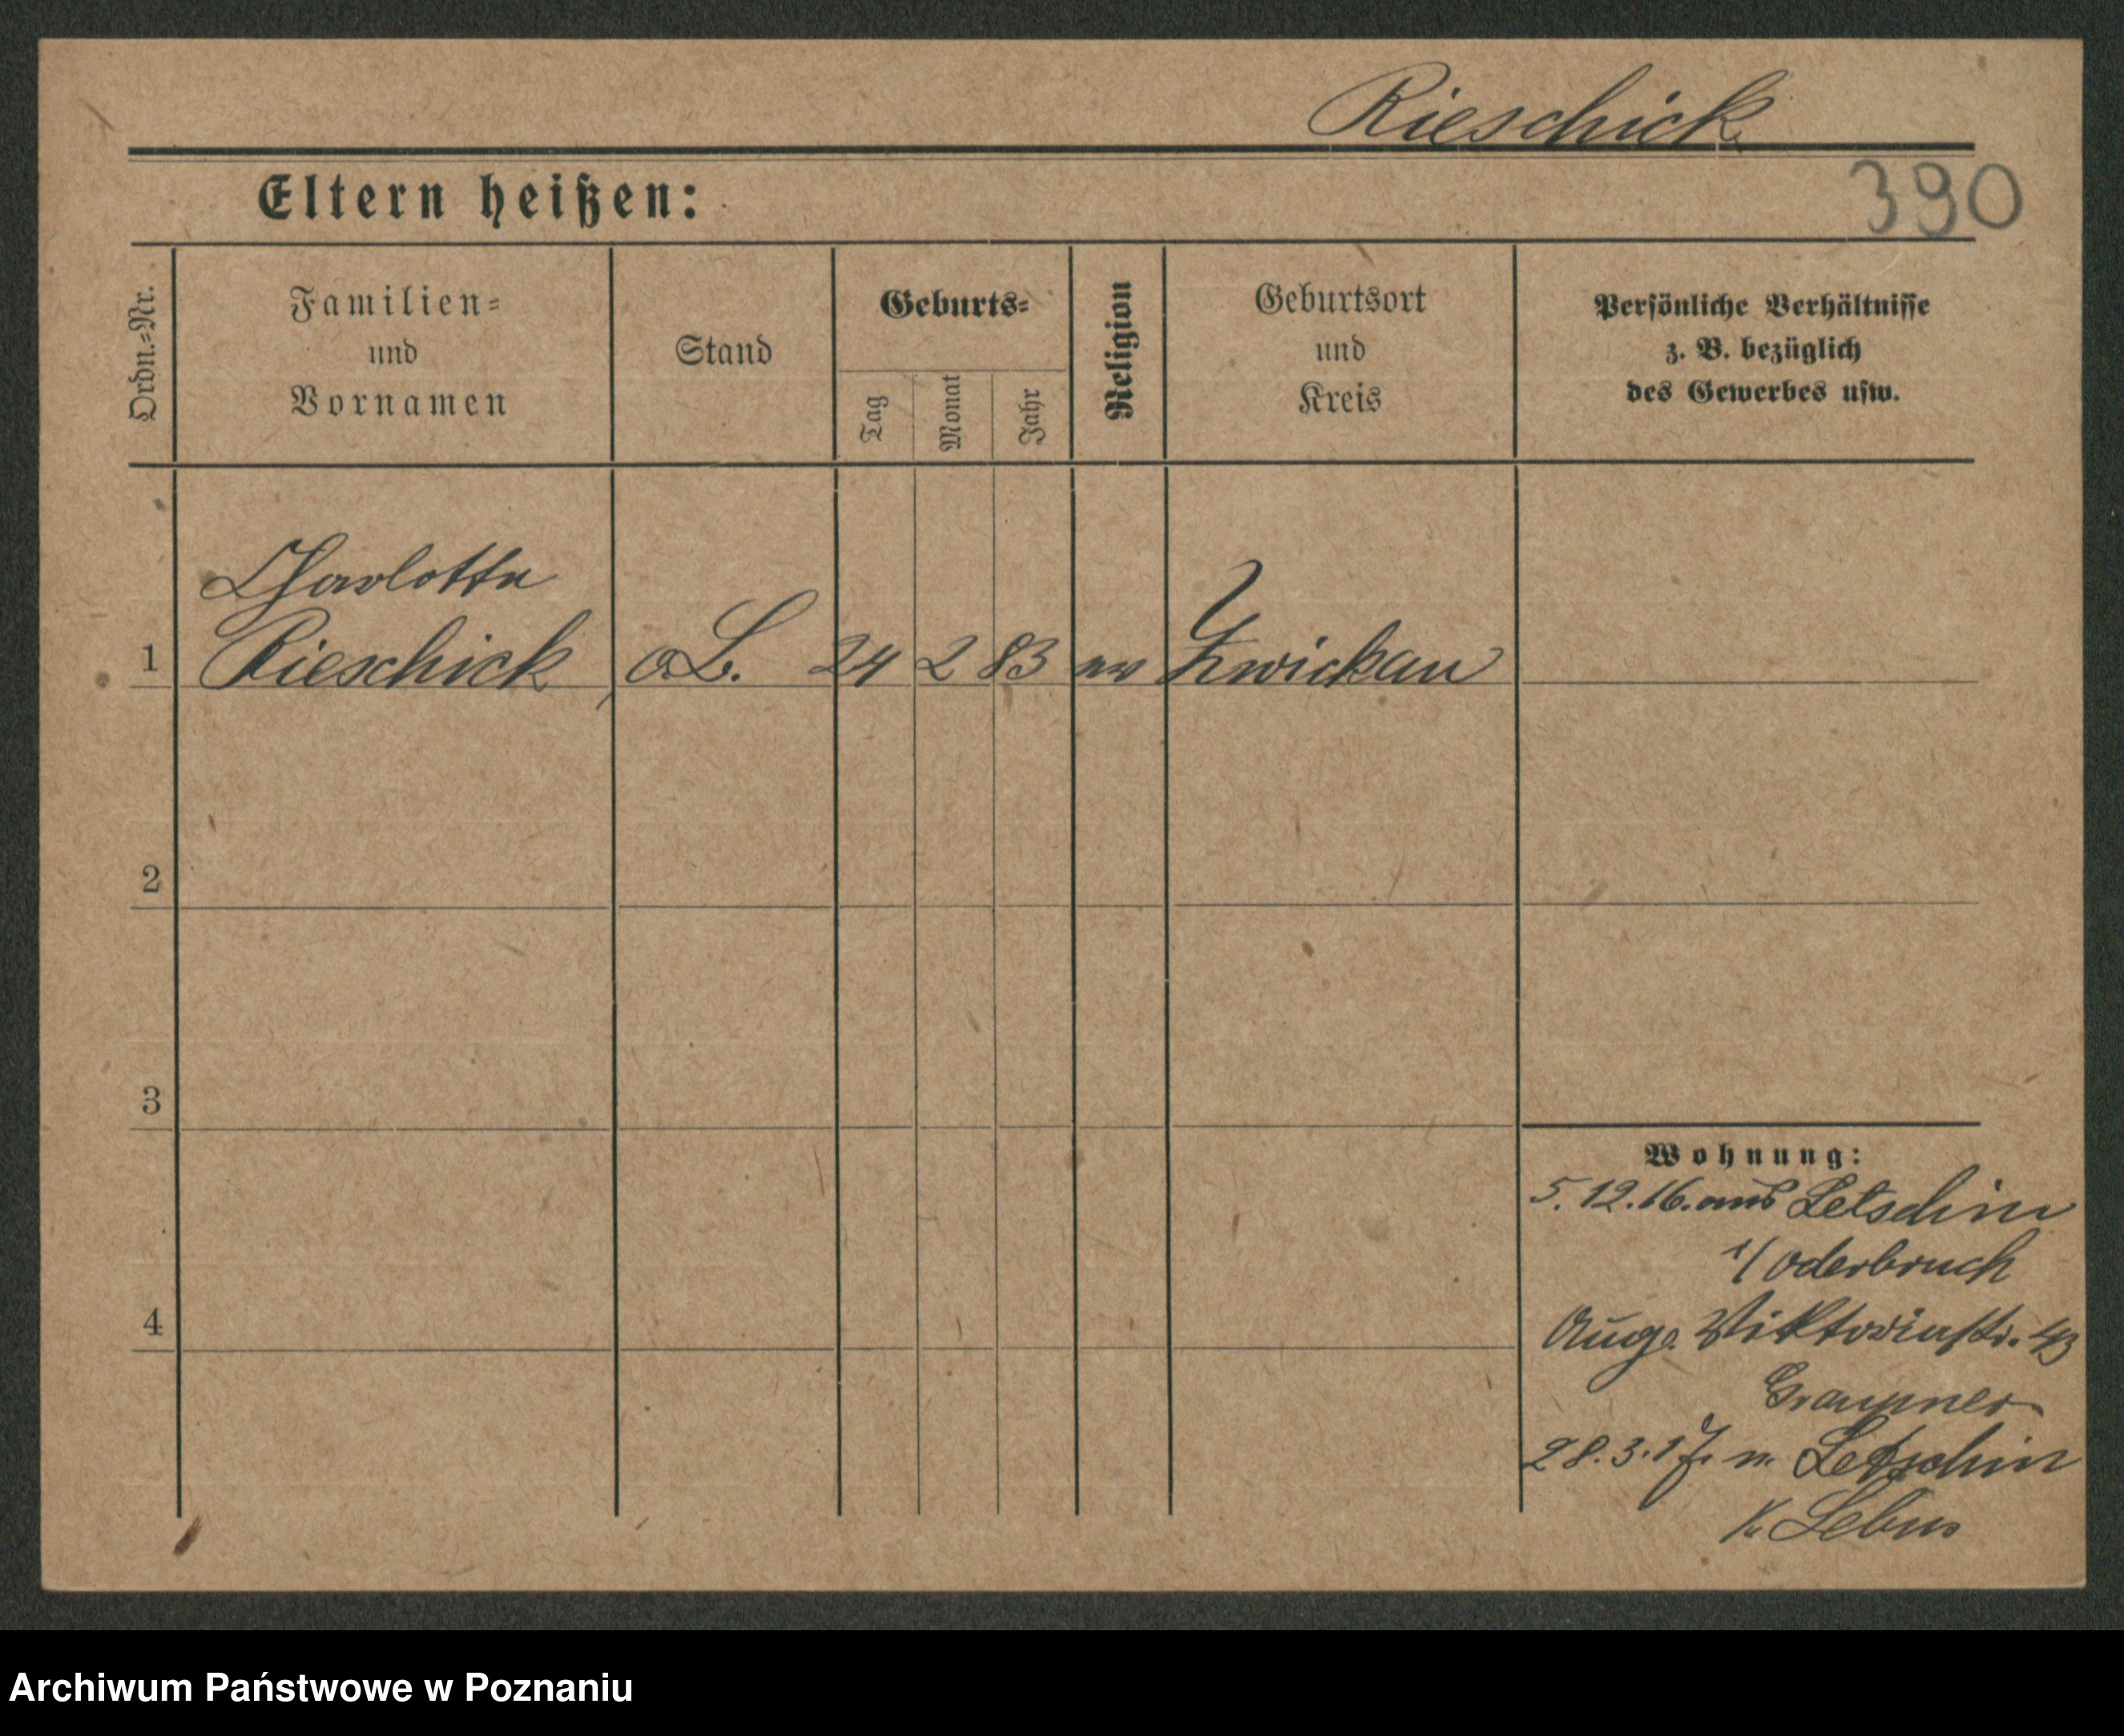 Rieschick
390
Eltern heißen:
Ordn.-Nr.
Familien-
und
Vornamen
Stand
Geburts-
Tag
Monat
Jahr
Religion
Geburtsort
und
Kreis
Persönliche Verhältnisse
z. B. bezüglich
des Gewerbes usw.
Charlotte
1 Rieschick, oL. 24 2 83 ev Zwickau
2
3
4
Wohnung:
5.12.16. aus Letschin
i/Oderbruch
Aug. Viktoriastr. 43
Graupner
28.3.17. n. Letschin
Kr. Lebus
Archiwum Państwowe w Poznaniu